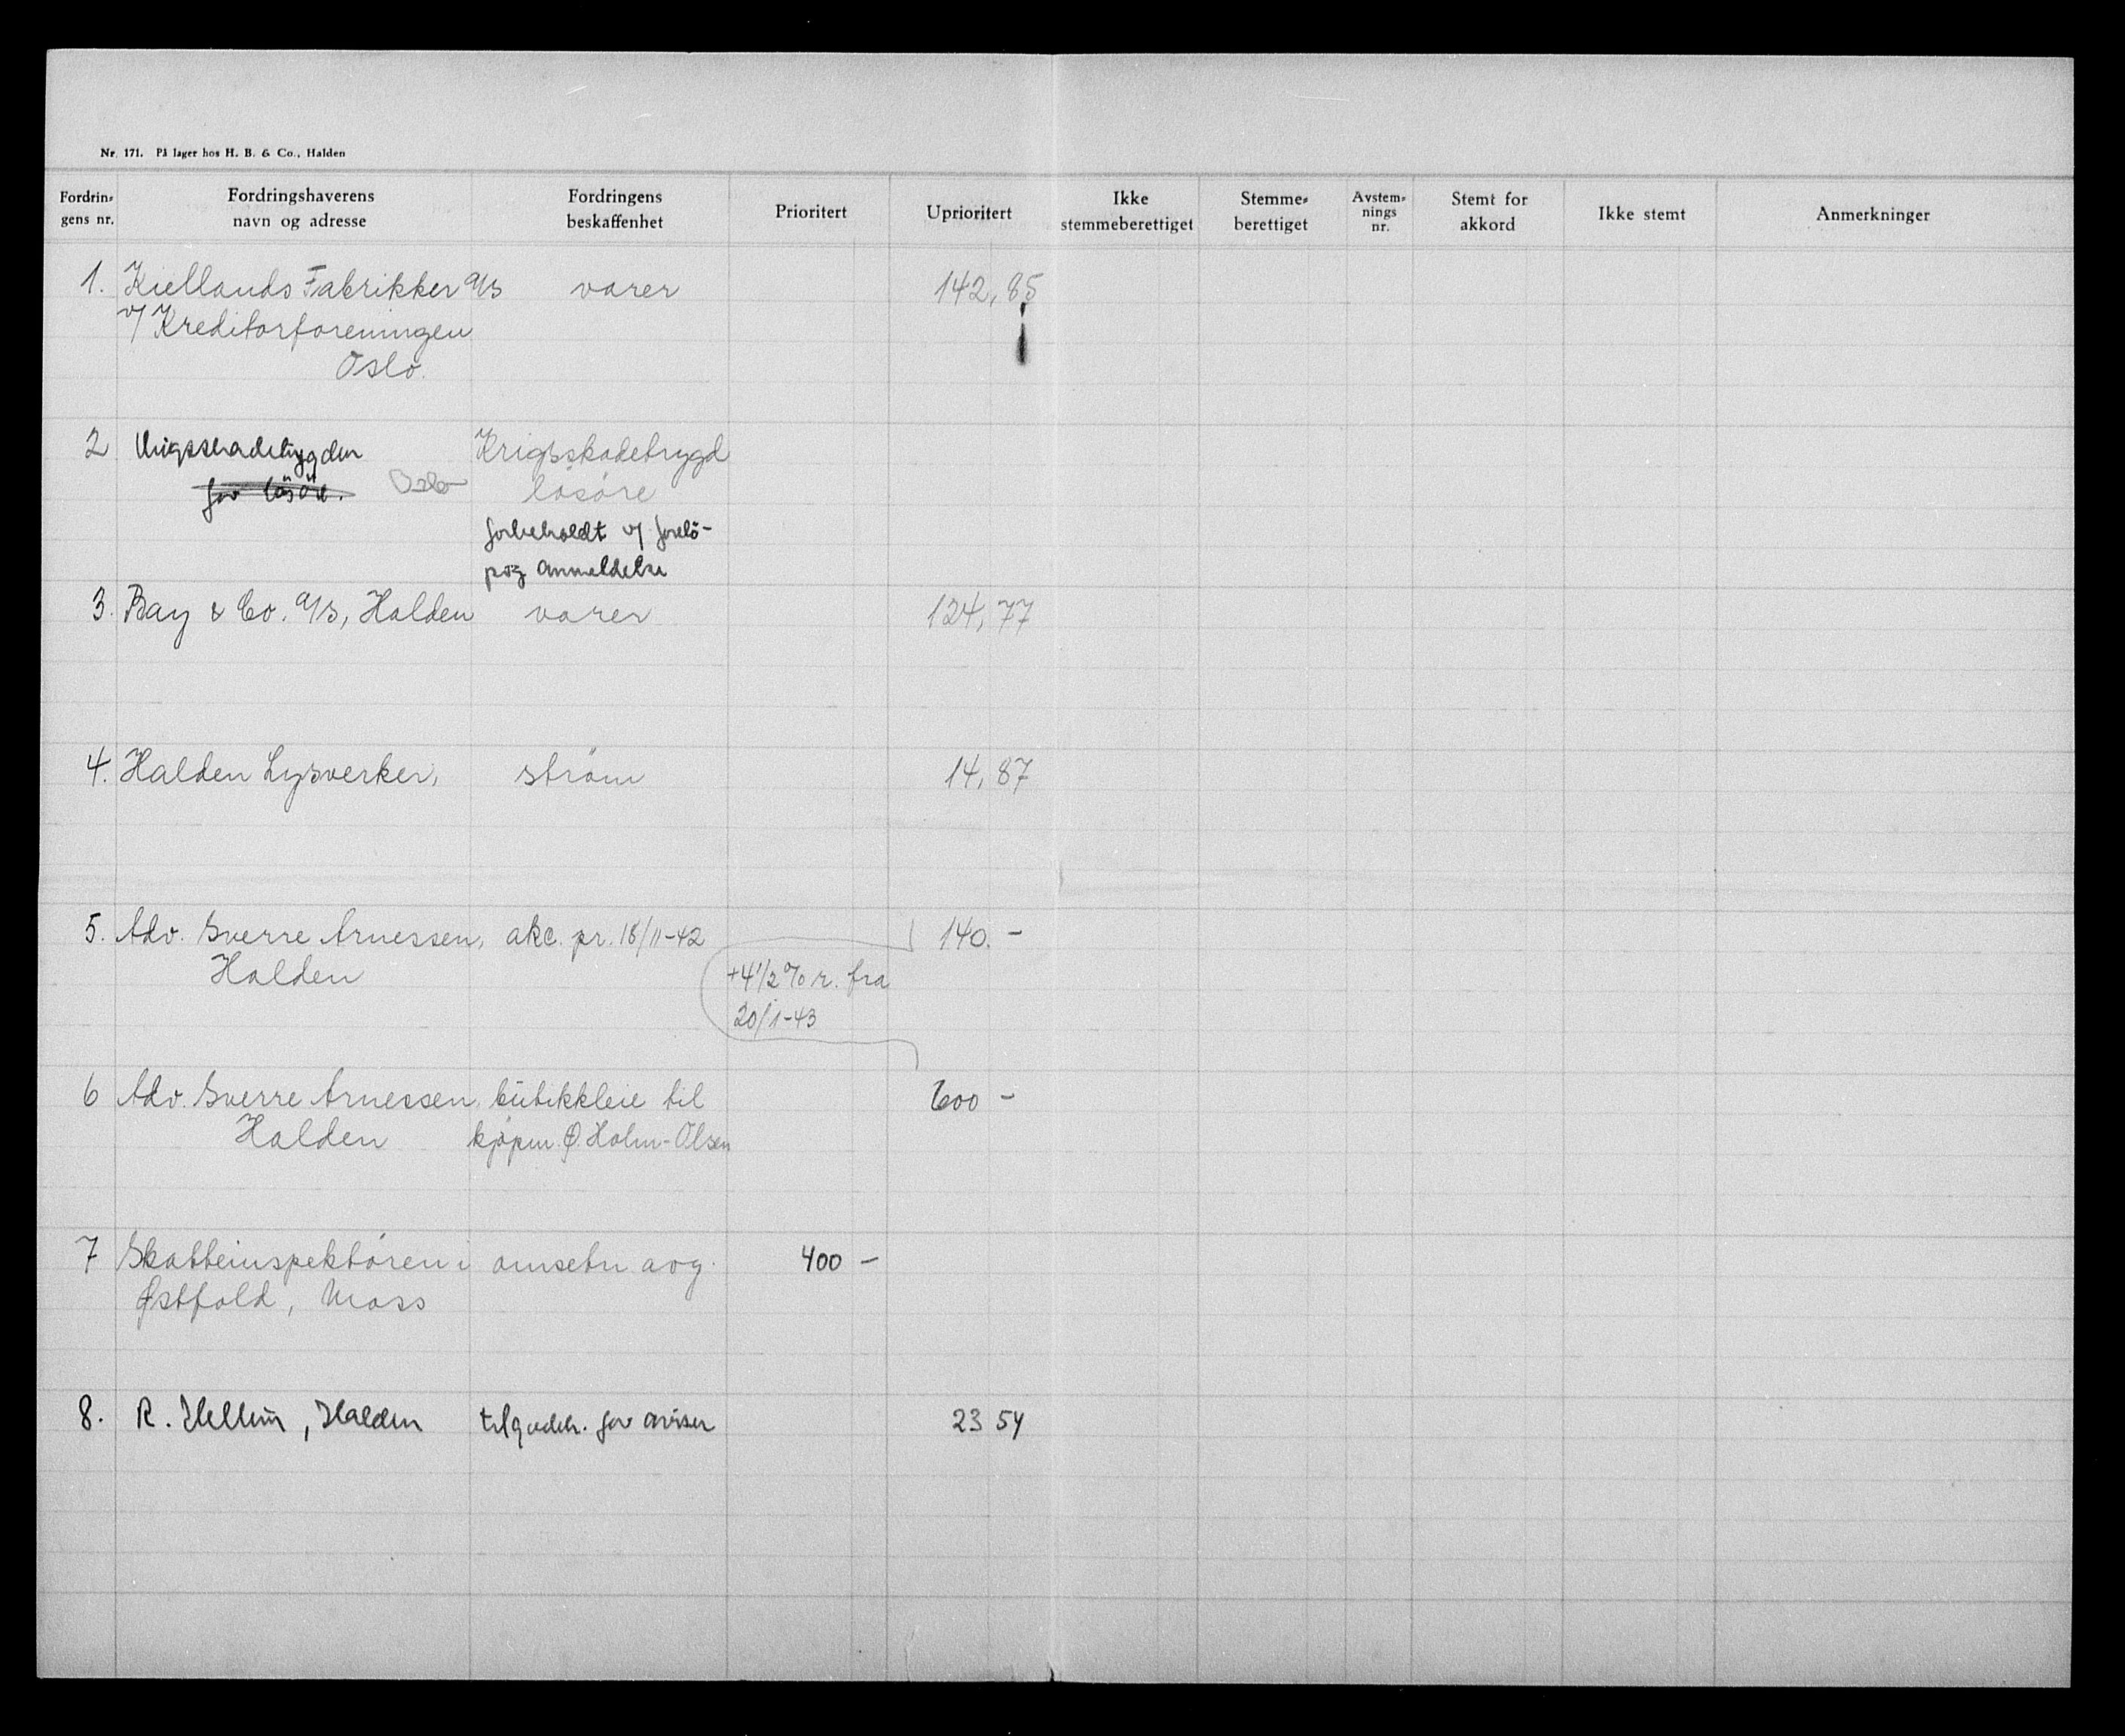 Nr. 171. På lager hos H. B. & Co., Halden
Fordrin-
gens nr.
Fordringshaverens
navn og adresse
Fordringens
beskaffenhet
Prioritert
Uprioritert
Ikke
stemmeberettiget
Stemme-
berettiget
Avstem-
nings
nr.
Stemt for
akkord
Ikke stemt
Anmerkninger
1. Kiellands Fabrikker A/S varer 142,85
v/ Kreditorforeningen
Oslo.
2 Krigsskadetrygden Krigsskadetrygd
for lösöre. Oslo lösöre
forbeholdt v/ forelö-
pig anmeldelse
3. Bay & Co. A/S, Halden varer 124,77
4. Halden Lysverker, ström 14,87
5. Adv. Sverre Arnessen, akc. pr. 18/11-42 140.-
Halden +4 1/2 % r. fra
20/1-43
6 Adv. Sverre Arnessen, bütikkleie til 600 -
Halden kjøpm. Ø. Holm-Olsen
7 Skatteinspektören i omsetn avg. 400 -
Østfold, Moss
8. R. Hellum, Halden tilgodeh. for aviser 23 54